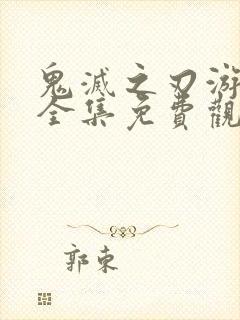 鬼滅之刃游
全集免費觀
郭東